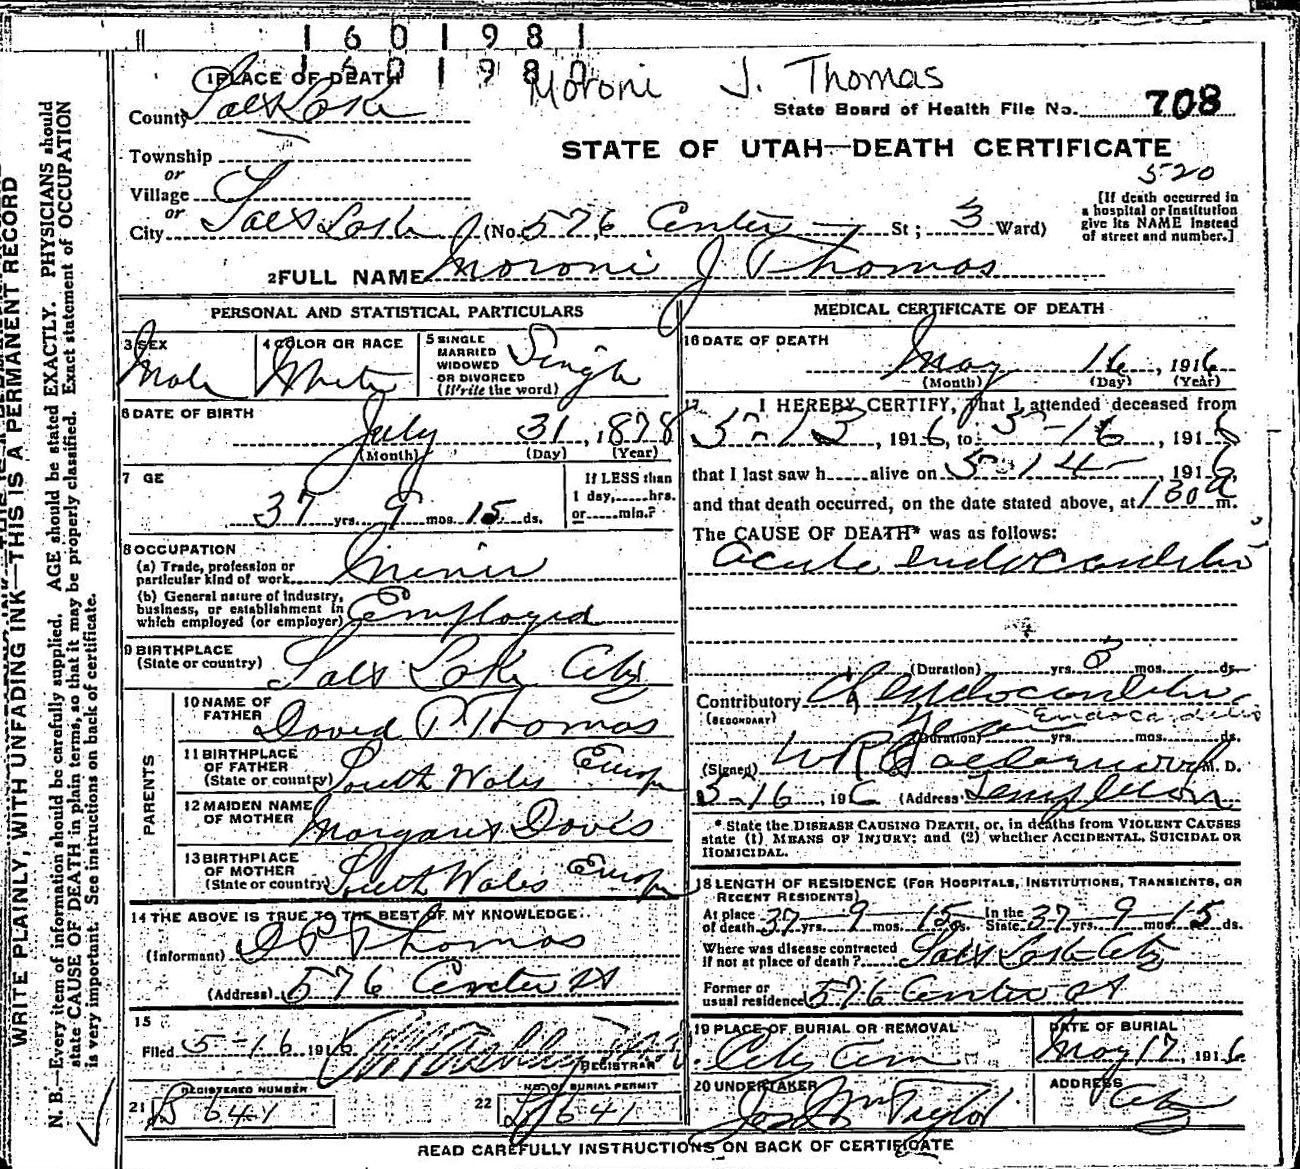 1 6 0 1 9 8 1
Moroni J. Thomas
1 PLACE OF DEATH
State Board of Health File No. 708
County Salt Lake
STATE OF UTAH—DEATH CERTIFICATE
Township
or
520
Village
or
[If death occurred in
a hospital or institution
give its NAME instead
of street and number.]
City Salt Lake (No. 576 Center St; 3 Ward)
2 FULL NAME Moroni J Thomas
PERSONAL AND STATISTICAL PARTICULARS
3 SEX Male
4 COLOR OR RACE White
5 SINGLE
MARRIED
WIDOWED
OR DIVORCED
(Write the word) Single
6 DATE OF BIRTH
July 31, 1878
(Month) (Day) (Year)
7 GE
37 yrs. 9 mos. 15 ds.
If LESS than
1 day,......hrs.
or......min.?
8 OCCUPATION
(a) Trade, profession or
particular kind of work Miner
(b) General nature of Industry,
business, or establishment in
which employed (or employer) Employed
9 BIRTHPLACE
(State or country) Salt Lake City
PARENTS
10 NAME OF
FATHER David P Thomas
11 BIRTHPLACE
OF FATHER
(State or country) South Wales Europe
12 MAIDEN NAME
OF MOTHER Margaret Davis
13 BIRTHPLACE
OF MOTHER
(State or country) South Wales Europe
14 THE ABOVE IS TRUE TO THE BEST OF MY KNOWLEDGE
(Informant) D P Thomas
(Address) 576 Center St
15
Filed 5-16 1916
REGISTRAR
REGISTERED NUMBER
21 B 641
NO. OF BURIAL PERMIT
22 641
MEDICAL CERTIFICATE OF DEATH
16 DATE OF DEATH
May 16, 1916
(Month) (Day) (Year)
17 I HEREBY CERTIFY, That I attended deceased from
5-13, 1916, to 5-16, 1916,
that I last saw h......alive on 5-14-, 1916,
and that death occurred, on the date stated above, at 130 a m.
The CAUSE OF DEATH* was as follows:
Acute Endocarditis
(Duration) yrs. 3 mos. ds.
Contributory Ch Endocarditis
(SECONDARY) Endocarditis
(Duration) yrs. mos. ds.
(Signed) W R M. D.
5-16, 1916 (Address) Templeton
* State the DISEASE CAUSING DEATH, or, in deaths from VIOLENT CAUSES
state (1) MEANS OF INJURY; and (2) whether ACCIDENTAL, SUICIDAL OR
HOMICIDAL.
18 LENGTH OF RESIDENCE (FOR HOSPITALS, INSTITUTIONS, TRANSIENTS, OR
RECENT RESIDENTS)
At place
of death 37 yrs. 9 mos. 15 ds. In the
State 37 yrs. 9 mos. 15 ds.
Where was disease contracted
if not at place of death? Salt Lake City
Former or
usual residence 576 Center St
19 PLACE OF BURIAL OR REMOVAL
City Cem
DATE OF BURIAL
May 17, 1916
20 UNDERTAKER
Jos Wm Taylor
ADDRESS
City
READ CAREFULLY INSTRUCTIONS ON BACK OF CERTIFICATE
WRITE PLAINLY, WITH UNFADING INK—THIS IS A PERMANENT RECORD
N. B.—Every item of information should be carefully supplied. AGE should be stated EXACTLY. PHYSICIANS should
state CAUSE OF DEATH in plain terms, so that it may be properly classified. Exact statement of OCCUPATION
is very important. See instructions on back of certificate.